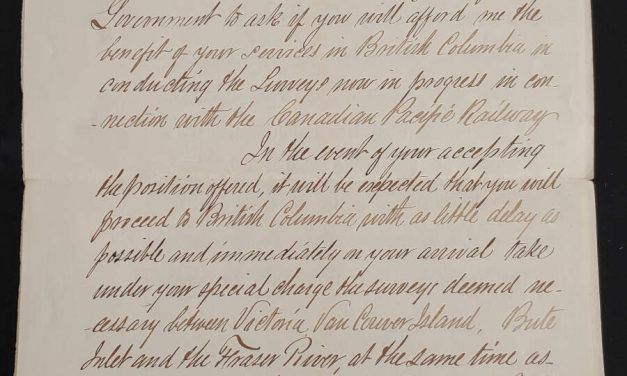 Government to ask if you will afford me the
benefit of your services in British Columbia in
conducting the Surveys now in progress in con-
-nection with the Canadian Pacific Railway
In the event of your accepting
the position offered, it will be expected that you will
proceed to British Columbia with as little delay as
possible and immediately on your arrival take
under your special charge the surveys deemed ne-
-cessary between Victoria, Van Couver Island, Bute
Inlet and the Fraser River, at the same time as-